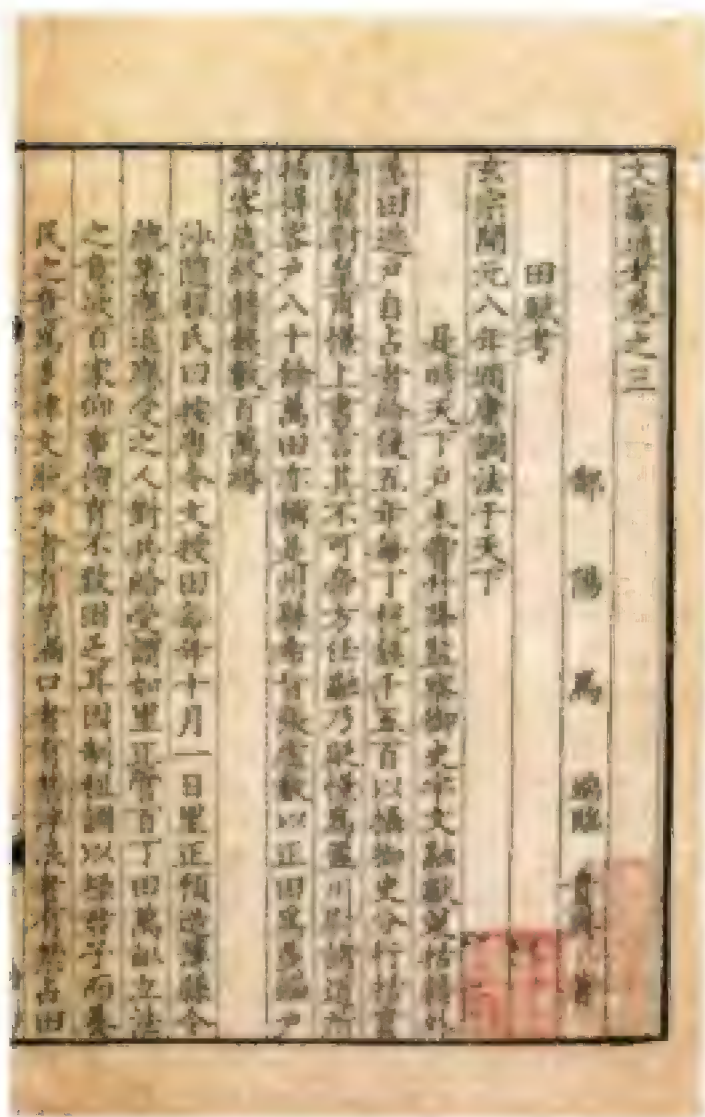 文獻通考卷之三
鄱陽馬端臨貴與著
田賦考
玄宗開元八年頒庸調法于天下
是時天下戶未嘗升降監察御史宇文融獻策括籍外
羨田逃戶自占者給復五年每丁稅錢千五百以攝御史分行括實
陽翟尉皇甫憬上書言其不可帝方任融乃貶憬為盈川尉諸道所
括得客戶八十餘萬田亦稱是州縣希旨張虛數以正田為羨編戶
為客歲終籍錢數百萬緡
沙隨程氏曰按唐令文授田每年十月一日里正預造簿縣令
總集應退應受之人對共給授謂如里正管百丁田萬畝立法
之意欲百家仰事俯育不致困乏耳因制租調以祿君子而養
民之意為多律文脫戶者有禁漏口者有禁浮浪者有禁占田